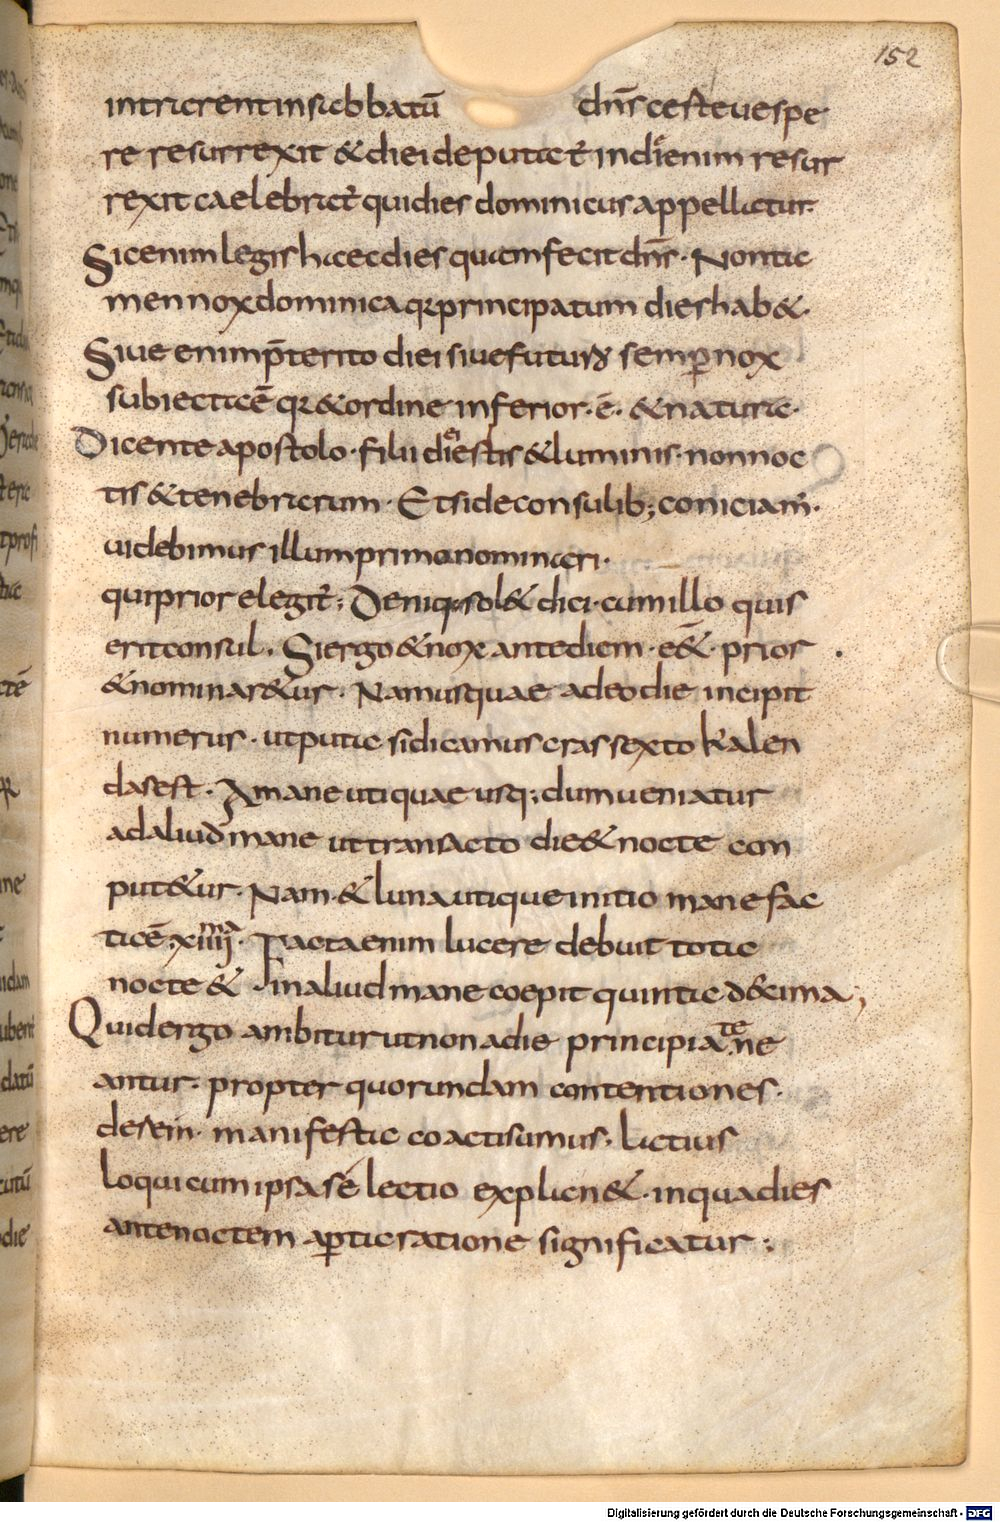 152
intrarent in sabbatū dn̄s ac estevespe
re resurrexit & diei deputat᷑ in diē enim resur
rexit caelebrat᷑ qui dies dominicus appellatur
Sic enim legis haec dies quam fecit dn̄s · Non ta
men nox dominica qꝛ principatum dies hab& ·
Siue enim p̄terito diei siue futuro semꝑ nox
subiecta ē qꝛ & ordine inferior · ē · & natura ·
Dicente apostolo · filii diei estis & luminis · non noc
tis & tenebrarum · Et si de consulib; coniciam᷒ ·
uidebimus illum primo nominari ·
qui prior elegit᷑ ; Deniq; sol& dici · cum illo quis
erit consul . Si ergo & nox ante diem · e&̄ · prior ·
& nominar&ur . Namusquae adeo die incipit
numerus · utputa si dicamus cras sexto kalen
das est · A mane utiquae usq; dum ueniatur
ad aliud mane ut transacto die & nocte con
put&ur · Nam · & luna utique initio mane fac
ta ē · xiiii ma · Facta enim lucere debuit tota
nocte & sin aliud mane coepit quinta · d&cima ;
Quid ergo ambitur ut non a die principia te ne
antur · propter quorundam contentiones ·
desein · manifesta coacti sumus · latius
loqui cum ipsa se lectio explicn& · in qua dies
ante noctem aꝑta ratione significatur :
Digitalisierung gefördert durch die Deutsche Forschungsgemeinschaft - DFG